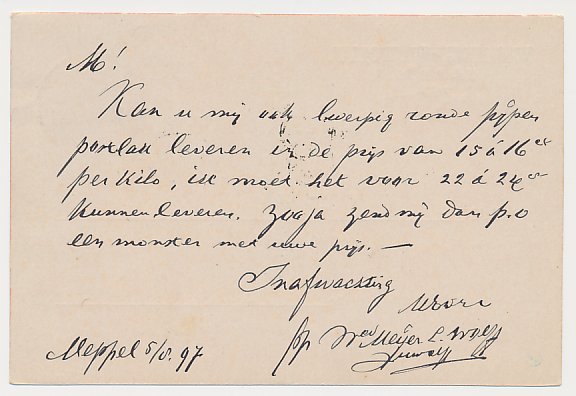 M!
Kan u mij ook ronde pijpen
poetlak leveren in de prijs van 15 á 16 ct
per kilo, ik moet het voor 22 á 24 ct
kunnen leveren. Zoo ja zend mij dan p.o
een monster met uwe prijs. —
In afwachting
pp Wed Meijer L. Wolff
Meppel 5/8. 97